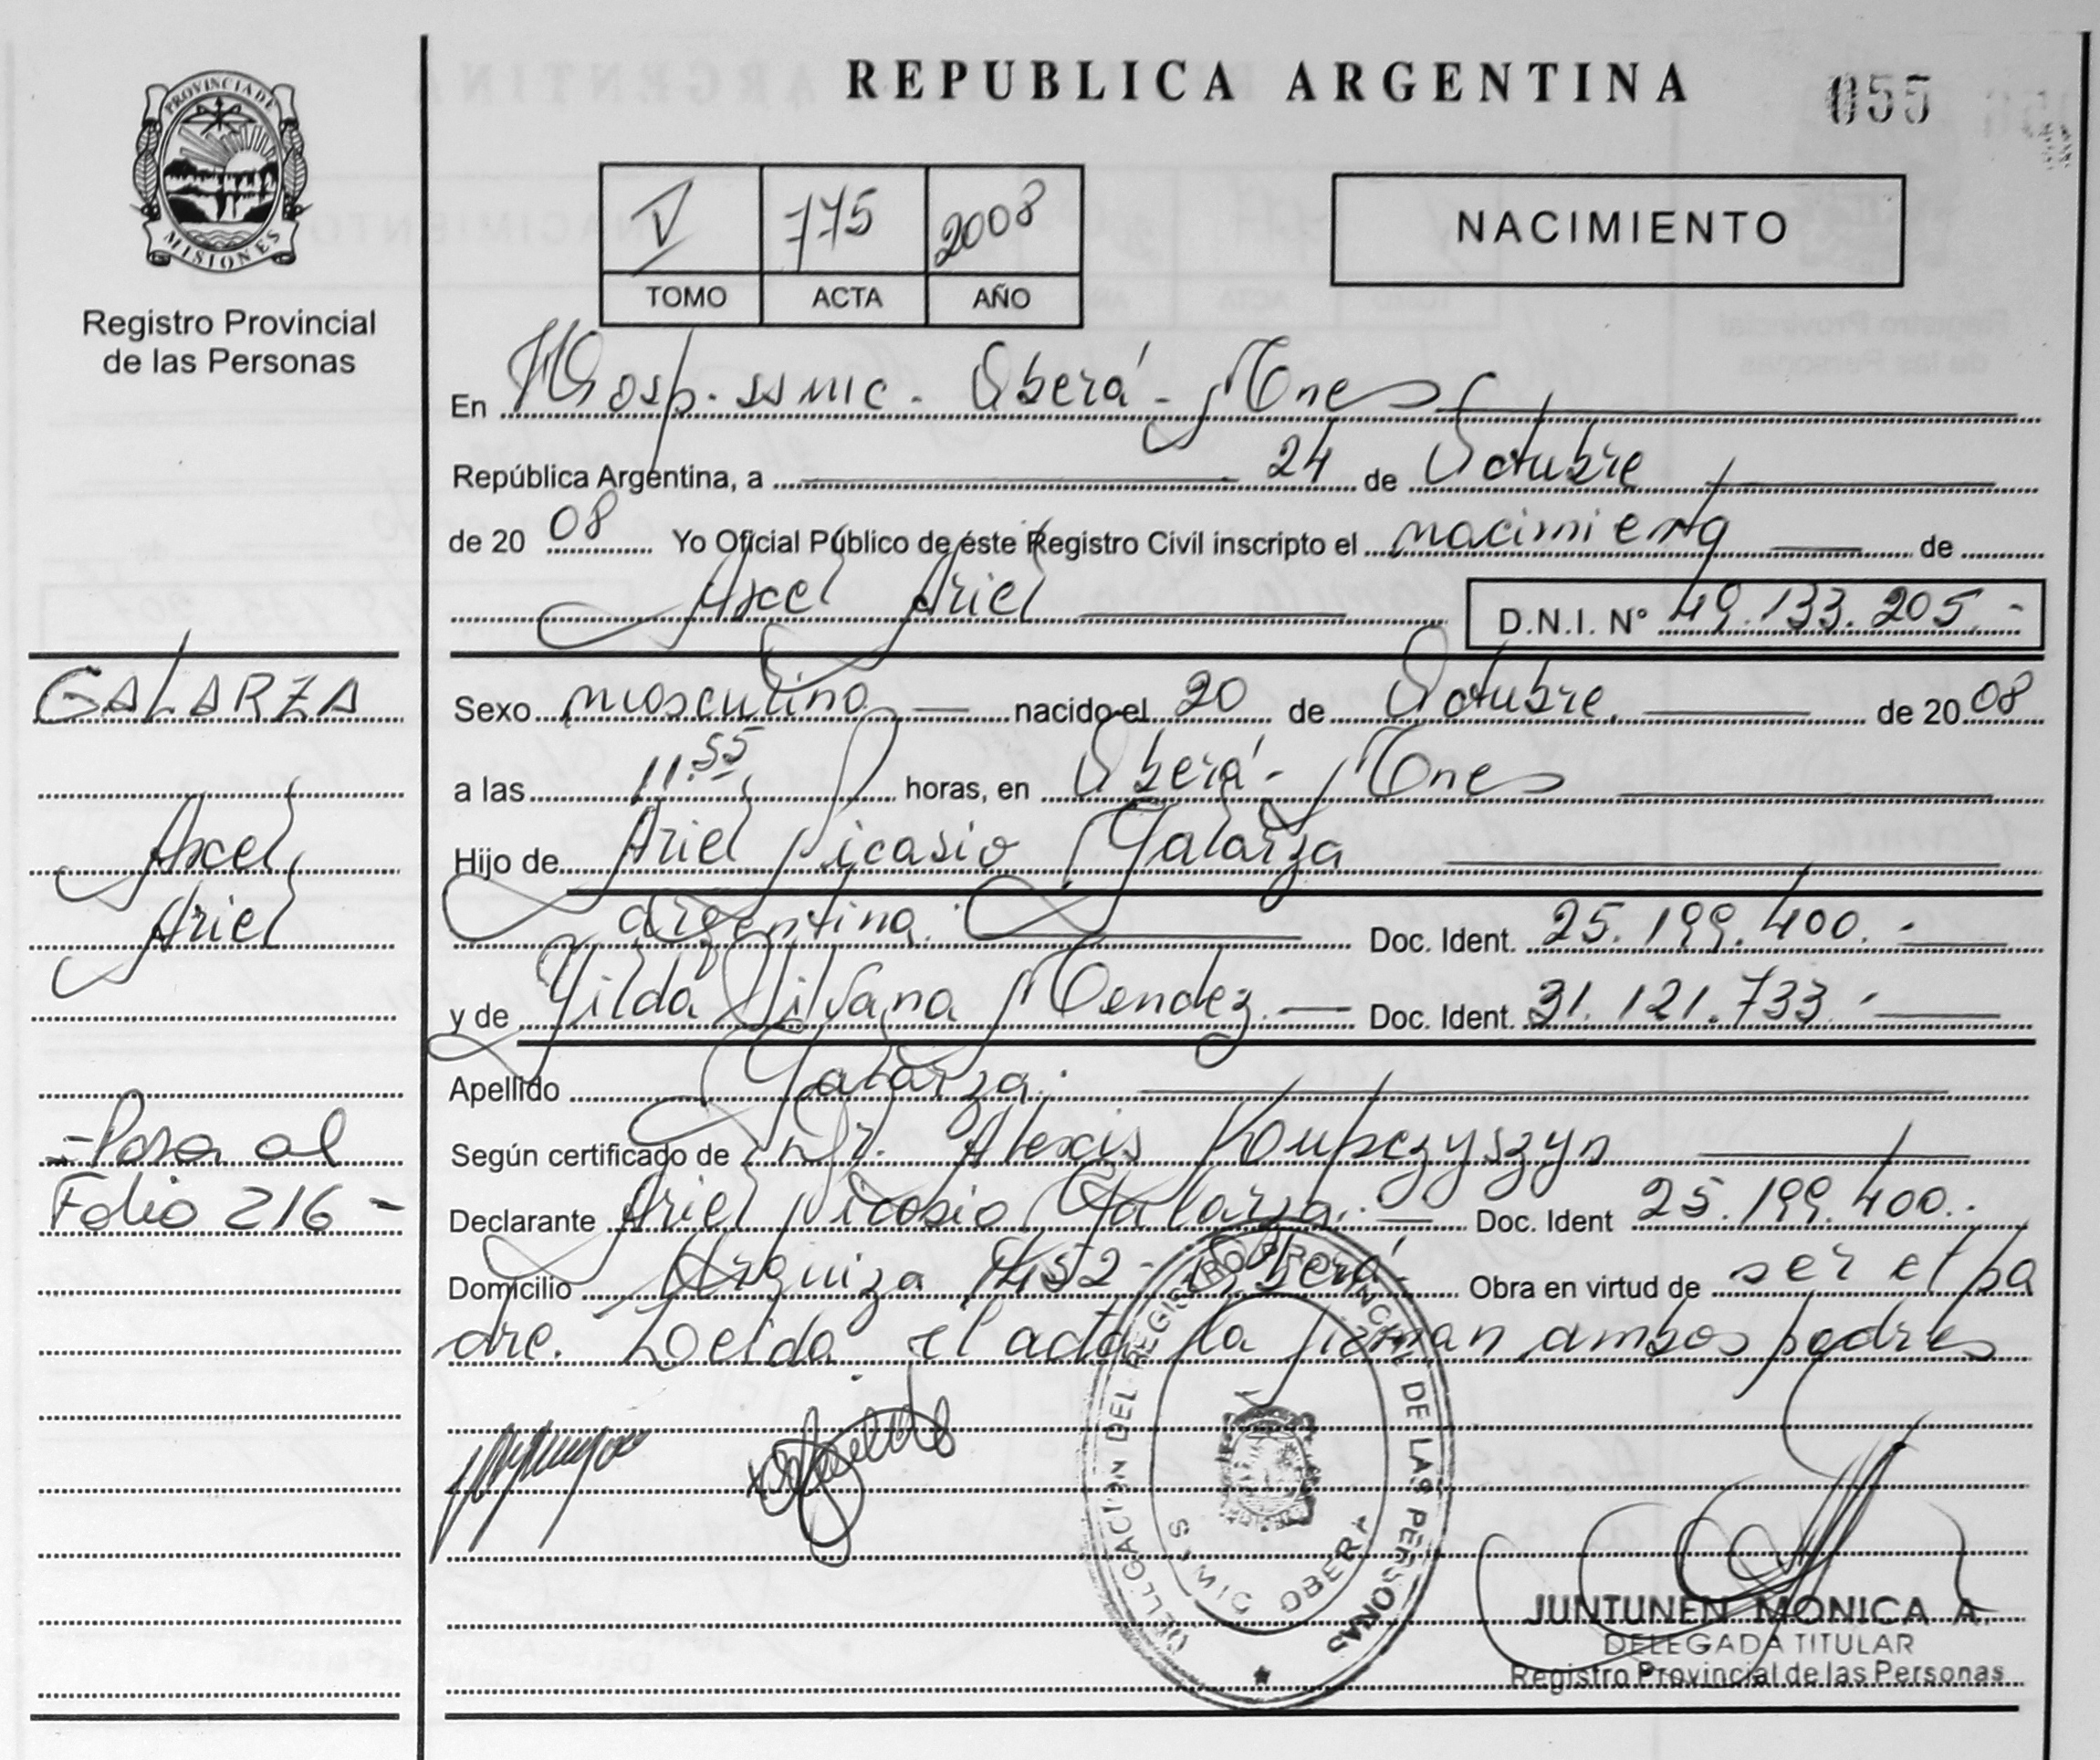 PROVINCIA DE
MISIONES
Registro Provincial
de las Personas
REPUBLICA ARGENTINA
055
V 775 2008
TOMO ACTA AÑO
NACIMIENTO
En Hosp. SSMIC. Oberá - Mnes
República Argentina, a 24 de Octubre
de 20 08 Yo Oficial Público de éste Registro Civil inscripto el nacimiento de
Axcel Ariel D.N.I. N° 49.133.205.-
GALARZA
Axcel
Ariel
- Pasa al
Folio 216 -
Sexo masculino nacido el 20 de Octubre. de 20 08
a las 11.55 horas, en Oberá - Mnes
Hijo de Ariel Nicasio Galarza
argentina. Doc. Ident. 25.199.400.-
y de Gilda Silvana Mendez. Doc. Ident. 31.121.733.-
Apellido Galarza.
Según certificado de Dr. Alexis Koupczyszyn
Declarante Ariel Nicasio Galarza. Doc. Ident 25.199.400.
Domicilio Urquiza 1452 - Oberá - Obra en virtud de ser el pa
dre. Leida el acta la firman ambos padres
DELEGACION DEL REGISTRO PROVINCIAL DE LAS PERSONAS
OBERA
JUNTUNEN MONICA A.
DELEGADA TITULAR
Registro Provincial de las Personas